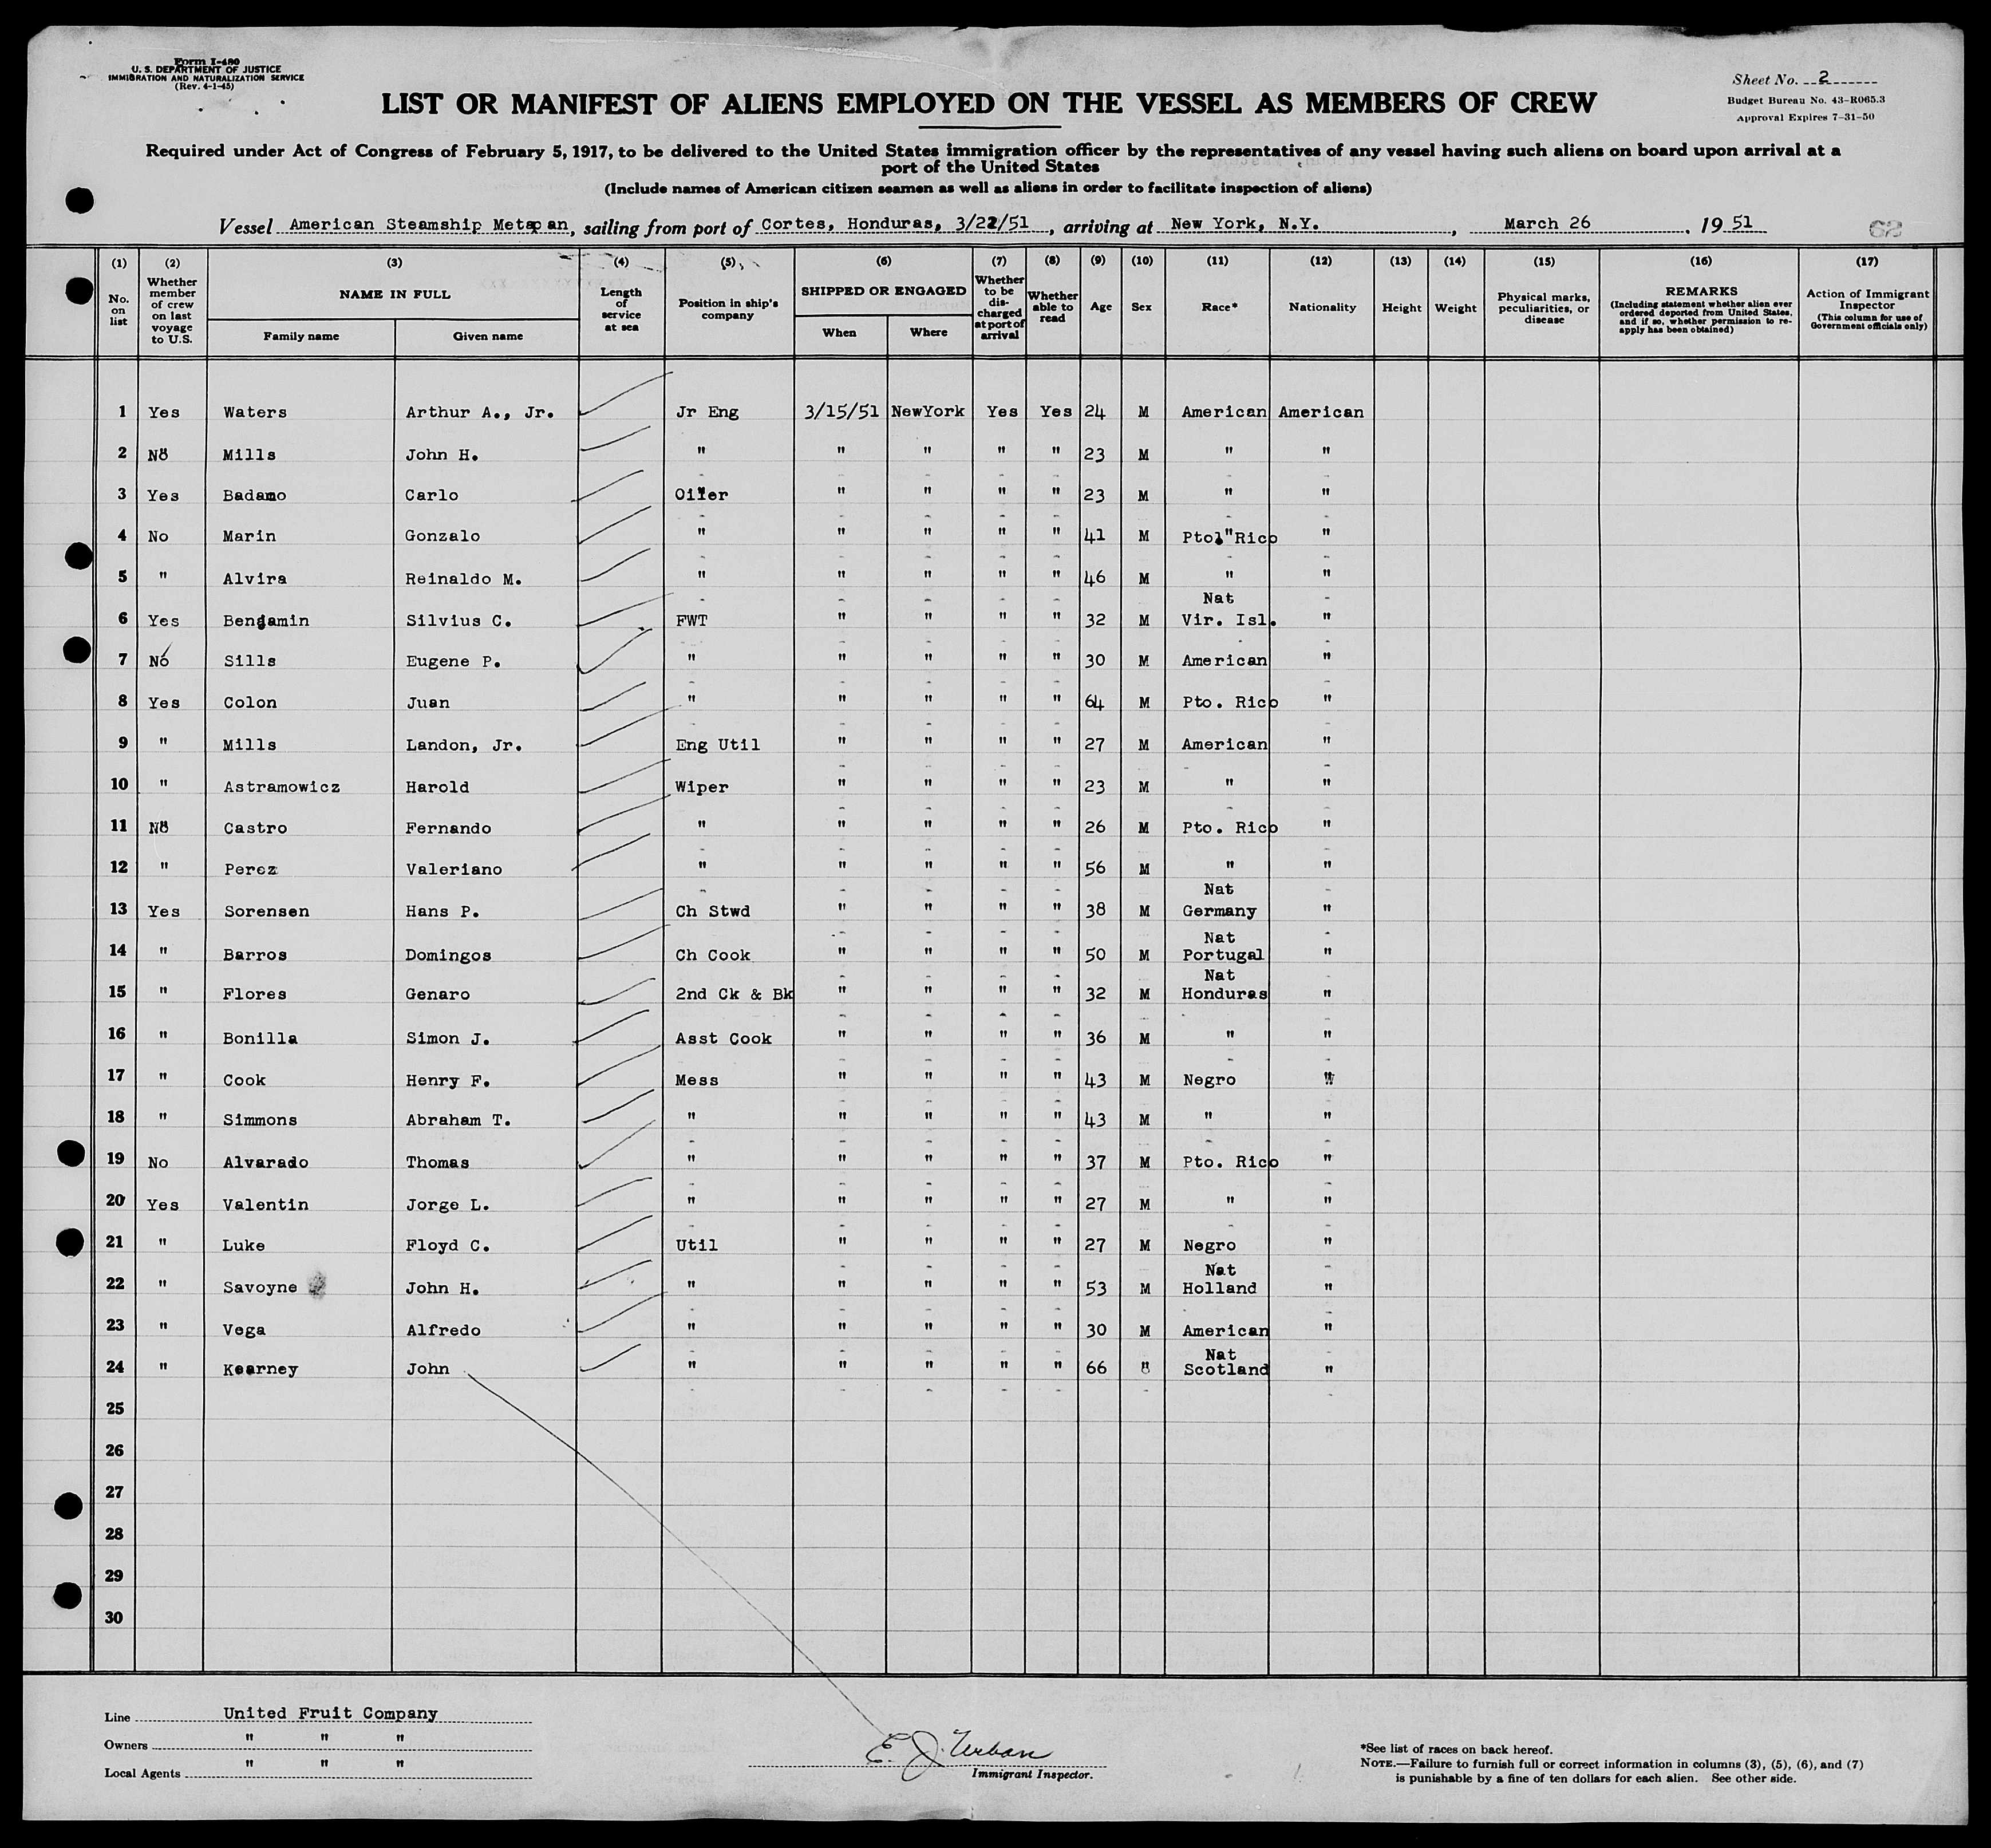 Form I-480
U. S. DEPARTMENT OF JUSTICE
IMMIGRATION AND NATURALIZATION SERVICE
(Rev. 4-1-45)
Sheet No. 2
Budget Bureau No. 43-R065.3
Approval Expires 7-31-50
LIST OR MANIFEST OF ALIENS EMPLOYED ON THE VESSEL AS MEMBERS OF CREW
Required under Act of Congress of February 5, 1917, to be delivered to the United States immigration officer by the representatives of any vessel having such aliens on board upon arrival at a
port of the United States
(Include names of American citizen seamen as well as aliens in order to facilitate inspection of aliens)
Vessel American Steamship Metapan, sailing from port of Cortes, Honduras, 3/22/51, arriving at New York, N.Y., March 26, 1951
62
(1) (2) (3) (4) (5) (6) (7) (8) (9) (10) (11) (12) (13) (14) (15) (16) (17)
No. on list
Whether member of crew on last voyage to U.S.
NAME IN FULL
Family name Given name
Length of service at sea
Position in ship's company
SHIPPED OR ENGAGED
When Where
Whether to be discharged at port of arrival
Whether able to read
Age
Sex
Race*
Nationality
Height
Weight
Physical marks, peculiarities, or disease
REMARKS
(Including statement whether alien ever ordered deported from United States, and if so, whether permission to reapply has been obtained)
Action of Immigrant Inspector
(This column for use of Government officials only)
1 Yes Waters Arthur A., Jr. Jr Eng 3/15/51 NewYork Yes Yes 24 M American American
2 No Mills John H. " " " " " 23 M " "
3 Yes Badamo Carlo Oiler " " " " 23 M " "
4 No Marin Gonzalo " " " " " 41 M Pto. Rico "
5 " Alvira Reinaldo M. " " " " " 46 M " "
6 Yes Benjamin Silvius C. FWT " " " " 32 M Nat Vir. Isl. "
7 No Sills Eugene P. " " " " " 30 M American "
8 Yes Colon Juan " " " " " 64 M Pto. Rico "
9 " Mills Landon, Jr. Eng Util " " " " 27 M American "
10 " Astramowicz Harold Wiper " " " " 23 M " "
11 No Castro Fernando " " " " " 26 M Pto. Rico "
12 " Perez Valeriano " " " " " 56 M " "
13 Yes Sorensen Hans P. Ch Stwd " " " " 38 M Nat Germany "
14 " Barros Domingos Ch Cook " " " " 50 M Nat Portugal "
15 " Flores Genaro 2nd Ck & Bk " " " " 32 M Nat Honduras "
16 " Bonilla Simon J. Asst Cook " " " " 36 M " "
17 " Cook Henry F. Mess " " " " 43 M Negro "
18 " Simmons Abraham T. " " " " " 43 M " "
19 No Alvarado Thomas " " " " " 37 M Pto. Rico "
20 Yes Valentin Jorge L. " " " " " 27 M " "
21 " Luke Floyd C. Util " " " " 27 M Negro "
22 " Savoyne John H. " " " " " 53 M Nat Holland "
23 " Vega Alfredo " " " " " 30 M American "
24 " Kearney John " " " " " 66 " Nat Scotland "
25
26
27
28
29
30
Line United Fruit Company
Owners " " "
Local Agents " " "
E. J. Urban
Immigrant Inspector.
*See list of races on back hereof.
NOTE.—Failure to furnish full or correct information in columns (3), (5), (6), and (7)
is punishable by a fine of ten dollars for each alien. See other side.